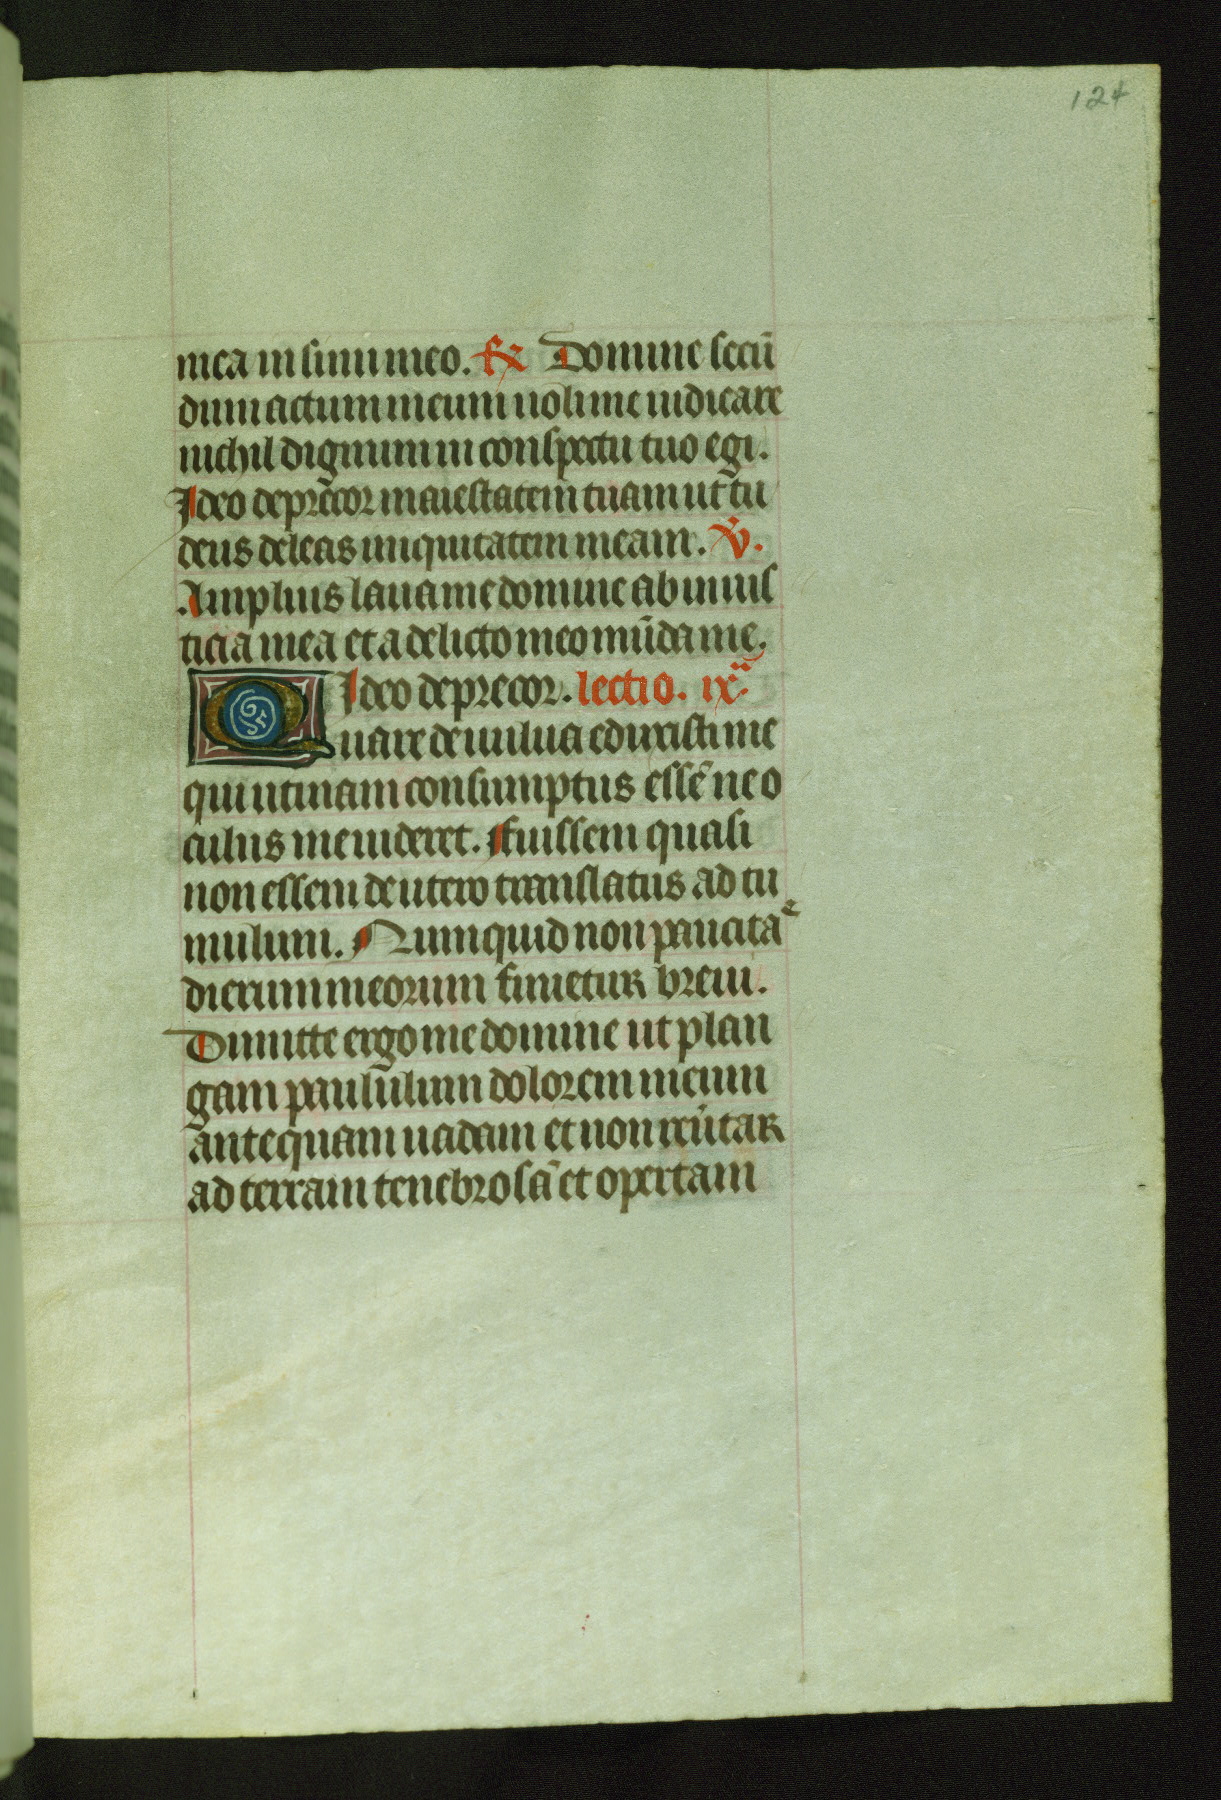 124
mea in sinu meo. ℟ Domine secū
dum actum meum noli me iudicare
nichil dignum in conspectu tuo egi.
Ideo deprecor maiestatem tuam ut tu
deus deleas iniquitatem meam. ℣.
Amplius laua me domine ab inius
ticia mea et a delicto meo mūda me.
Ideo deprecor. lectio. ix.ª
Quare de uulua eduxisti me
qui utinam consumptus essē ne o
culus me uideret. Fuissem quasi
non essem de utero translatus ad tu
mulum. Numquid non paucitaˢ
dierum meorum finietur breui.
Dimitte ergo me domine ut plan
gam paululum dolorem meum
antequam uadam et non reūtar
ad terram tenebrosā et opertam